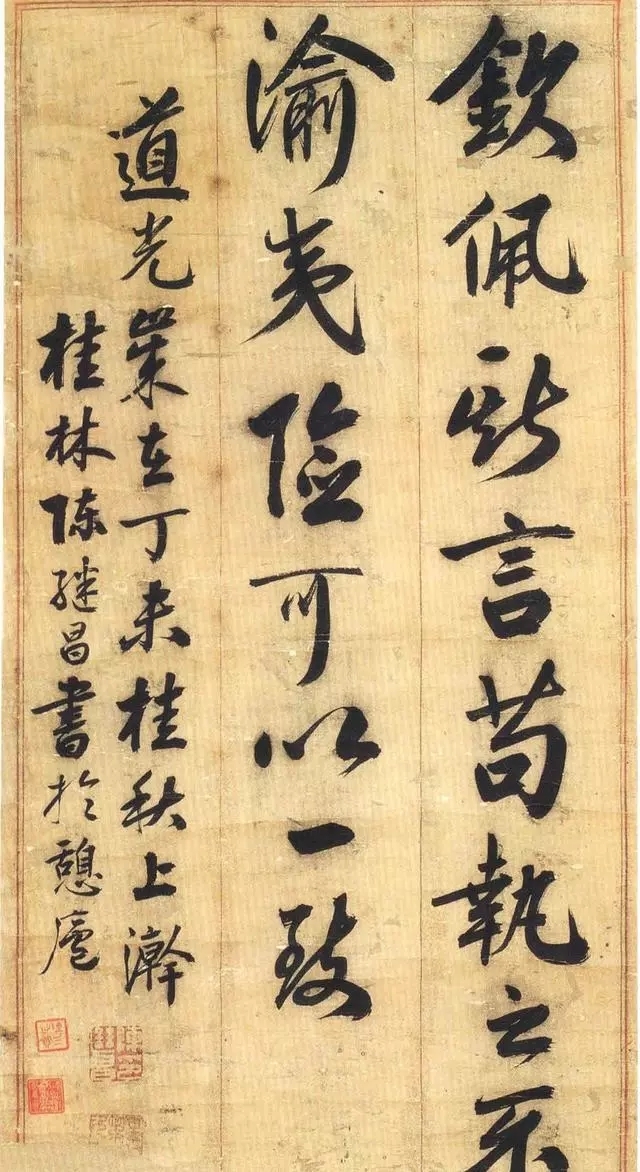 欽佩斯言苟執之不
渝夷險可以一致
道光歲在丁未桂秋上澣
桂林陳繼昌書於憩廬